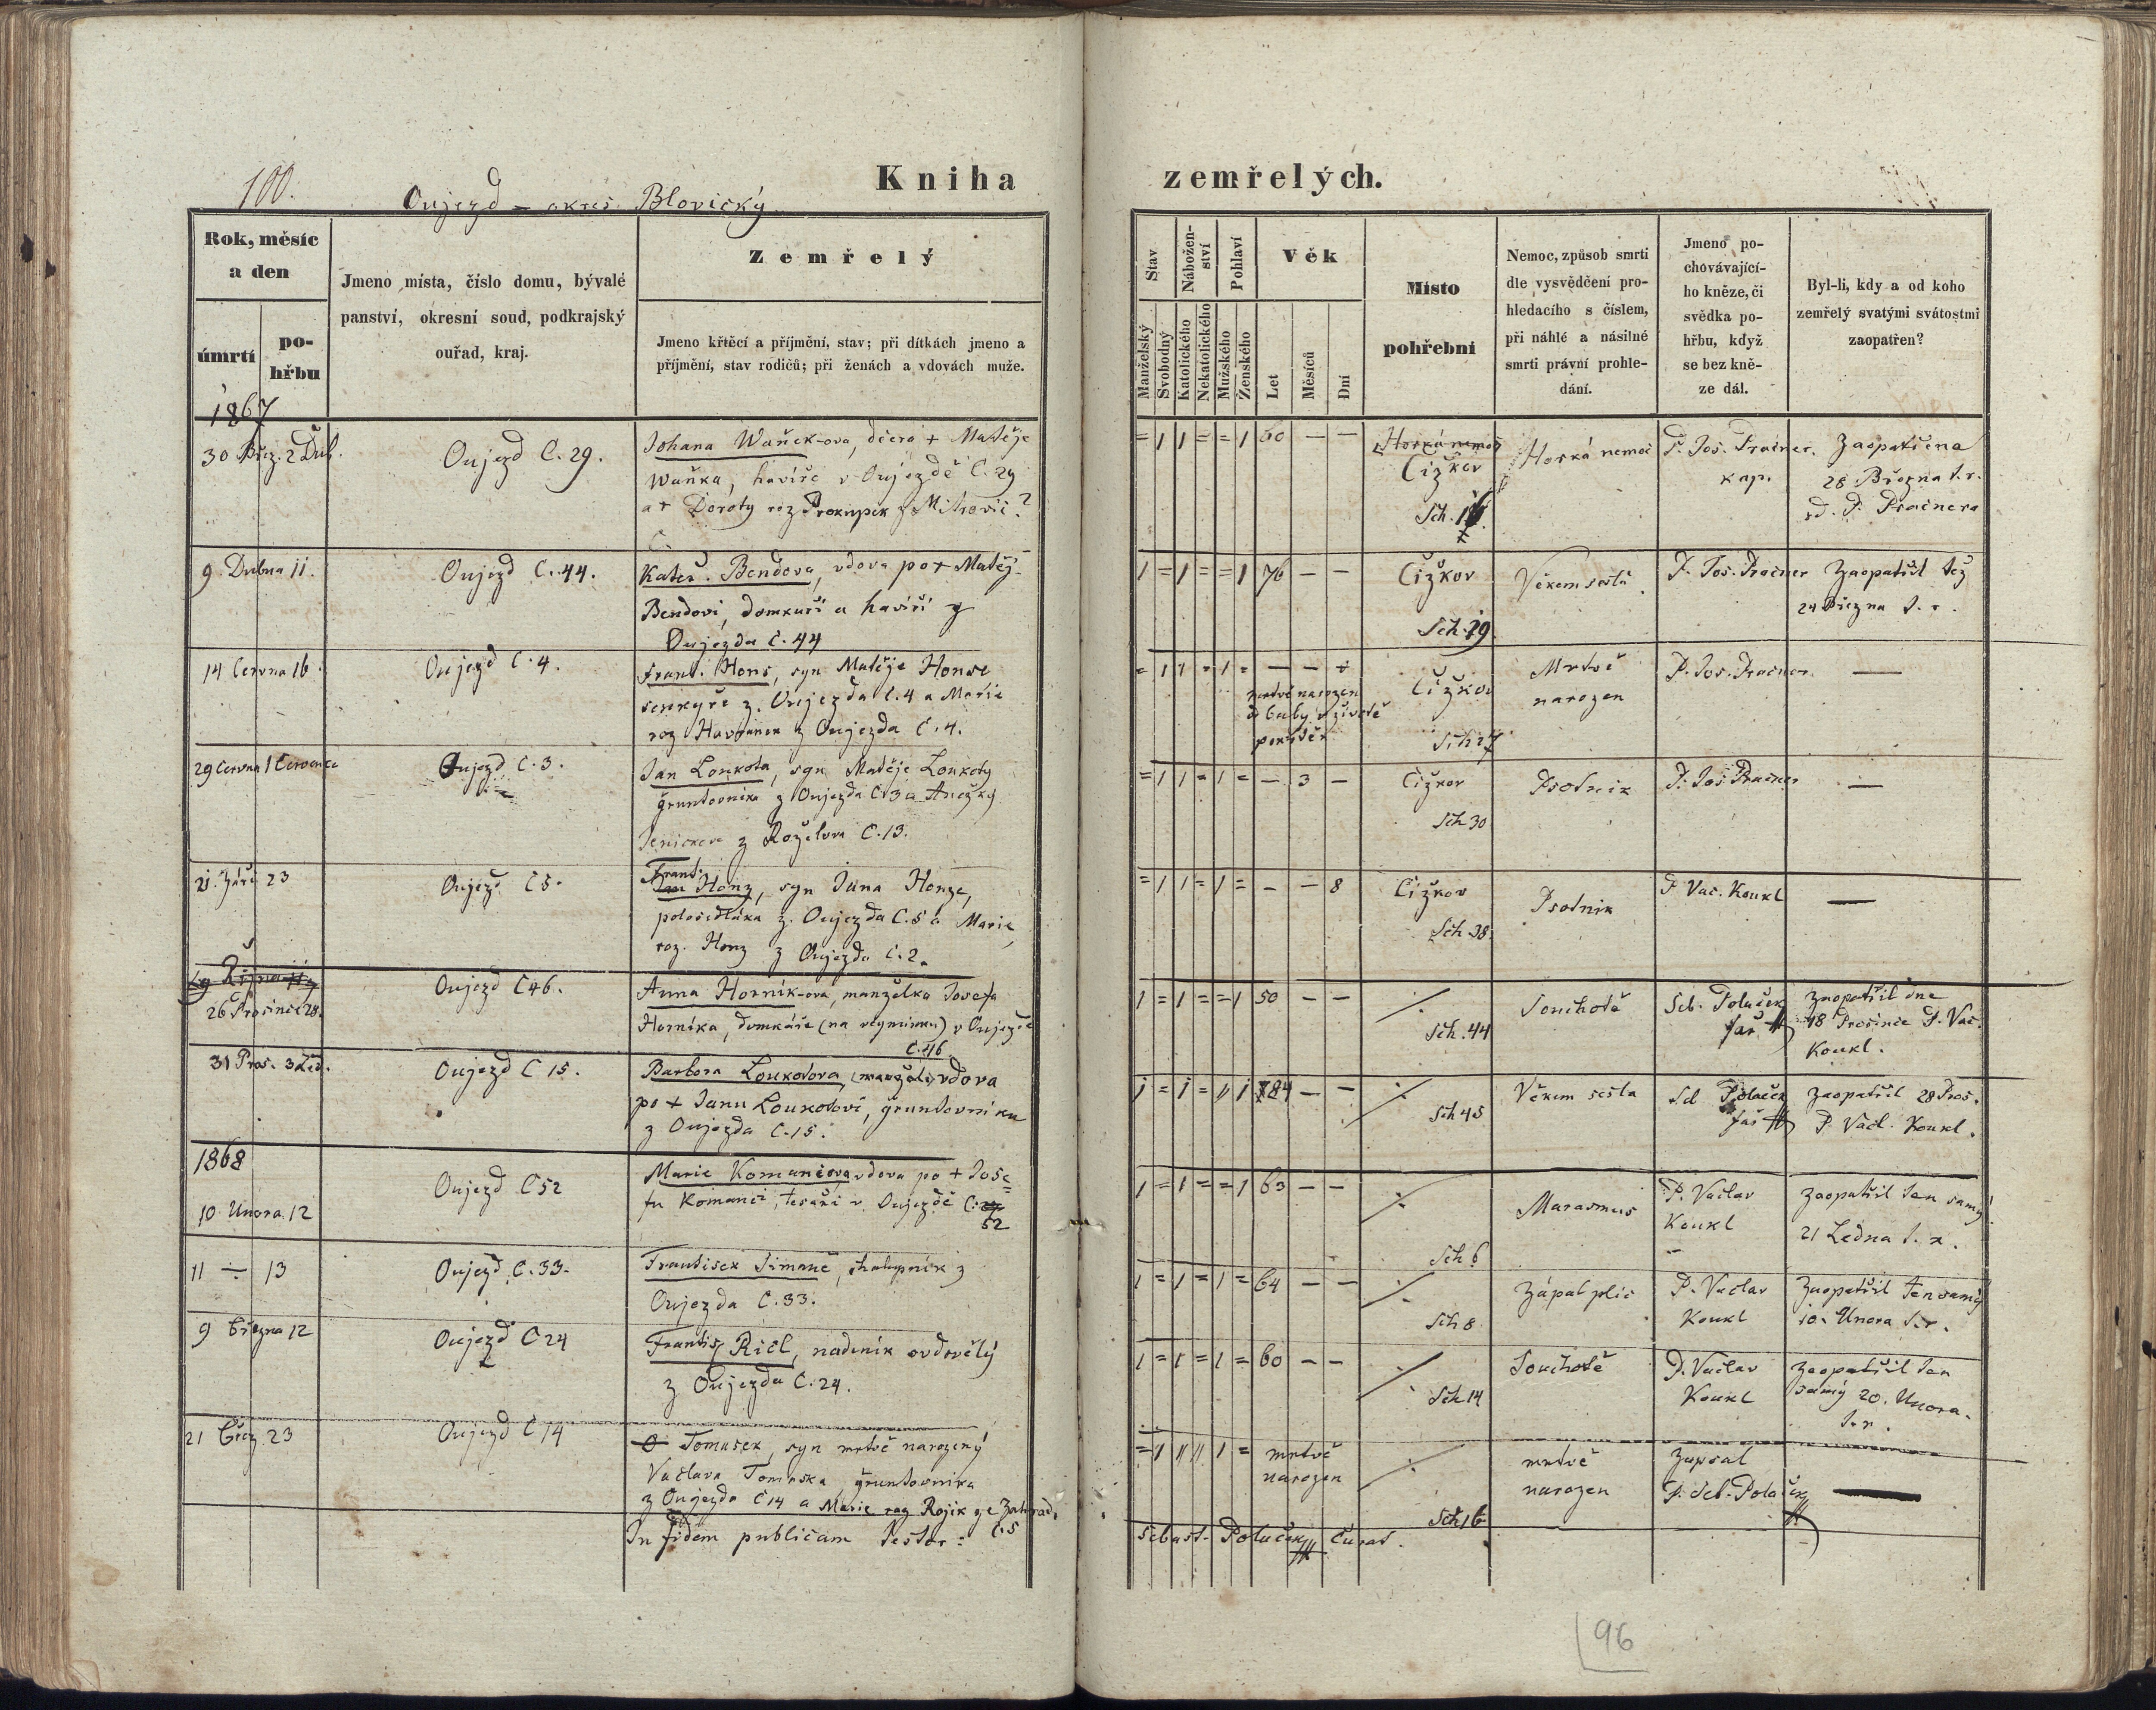 100.
Oujezd – okres Blovický
Kniha zemřelých.
Rok, měsíc a den
úmrtí
pohřbu
Jmeno místa, číslo domu, bývalé
panství, okresní soud, podkrajský
ouřad, kraj.
Zemřelý
Jmeno křtěcí a příjmění, stav; při dítkách jmeno a
příjmění, stav rodičů; při ženách a vdovách muže.
Stav
Nábožen-
ství
Pohlaví
Věk
Manželský
Svobodný
Katolického
Nekatolického
Mužského
Ženského
Let
Měsíců
Dní
Místo
pohřební
Nemoc, způsob smrti
dle vysvědčení pro-
hledacího s číslem,
při náhlé a násilné
smrti právní prohle-
dání.
Jmeno po-
chovávající-
ho kněze, či
svědka po-
hřbu, když
se bez kně-
ze dál.
Byl-li, kdy a od koho
zemřelý svatými svátostmi
zaopatřen?
1867
30 Břez. 2 Dub.
Oujezd C. 29.
Johana Waňek-ova, dcera + Matěje
Waňka, havíře v Oujezdě C. 29
a + Doroty roz Prokupek z Mitrovic?
= 1 1 = = 1 60 — —
Horká nemoc
Čížkov
Sch.
Horká nemoc
P. Jos. Pračner.
kap.
Zaopatřena
28 Března t. r.
od P. Pračnera
9. Dubna 11.
Oujezd C. 44.
Kateř. Bendova, vdova po + Matěj
Bendovi, domkáři a havíři z
Oujezda C. 44
1 = 1 = = 1 76 — —
Čížkov
Sch. 19
Věkem sešlá.
P. Jos. Pračner
Zaopatřil též
24 Března t. r.
14 Června 16.
Oujezd C. 4.
Frant. Hons, syn Matěje Honse
z. Oujezda C. 4 a Marie
roz Havránek z Oujezda C. 4.
= 1 1 = 1 = — — ÷
mrtvě narozen
od baby v životě
pokřtěn
Čížkov
Sch 27
Mrtvě
narozen
P. Jos. Pračner.
—
29 Června 1 Července
Oujezd C. 3.
Jan Loukota, syn Matěje Loukoty
gruntovníka z Oujezda C 3 a Anežky
z Roželova C. 13.
= 1 1 = 1 = — 3 —
Čížkov
Sch 30
Psotnik
P. Jos. Pračner
—
21. Září 23
Oujezd. C 5.
Frant.
Jan Honz, syn Jana Honze,
polosedláka z. Oujezda C. 5 a Marie,
roz. Honz z Oujezda C. 2.
= 1 1 = 1 = — — 8
Čížkov
Sch 38.
Psotnik
P Vac. Koukl
—
Října
26 Prosince 28.
Oujezd C 46.
Anna Horník-ova, manželka Josefa
Horníka, domkáře (na vejminku) v Oujezdě
C. 46
1 = 1 = = 1 50 — —
÷
Sch. 44
Souchotě
Seb. Polaček
far
zaopatřil dne
18 Prosince P. Vac.
Koukl.
31 Pros. 3 Led.
Oujezd C 15.
Barbora Loukotova, (manžel.) vdova
po + Janu Loukotovi, gruntovníku
z Oujezda C. 15.
1 = 1 = 1 84 — —
÷
Sch 45
Věkem sešla
Seb Polaček
far
zaopatřil 28 Pros.
P. Vacl. Koukl.
1868
10. Unora. 12
Oujezd C 52
Marie Komanciova vdova po + Jose=
fu Komanci, tesaři v. Oujezdě C.
52
1 = 1 = = 1 63 — —
÷
Sch 6
Marasmus
P. Vaclav
Koukl
zaopatřil ten samý
21 Ledna t. r.
11 ÷ 13
Oujezd C. 33.
Frantisek Simane, chalupník z
Oujezda C. 33.
1 = 1 = 1 = 64 — —
÷
Sch 8
Zápal plic
P. Vaclav
Koukl
Zaopatřil ten samý
10. Unora t. r.
9 března 12
Oujezd C 24
Frantis. Ričl, nadeník ovdovělý
z Oujezda C. 24.
1 = 1 = 1 = 60 — —
÷
Sch 14
Souchotě
P. Vaclav
Koukl
Zaopatřil ten
samý 20. Unora.
t. r.
21 břez. 23
Oujezd C 14
Tomasek, syn mrtvě narozený
Vaclava Tomaska gruntovníka
z Oujezda C 14 a Marie roz Rojik ze Zahrad.
C. 5
= 1 1 = mrtvě
narozen
÷
Sch 16
mrtvě
narozen
zapsal
P. Seb. Polaček
—
In fidem publicam testor: Sebast. Polaček, Curat.
96